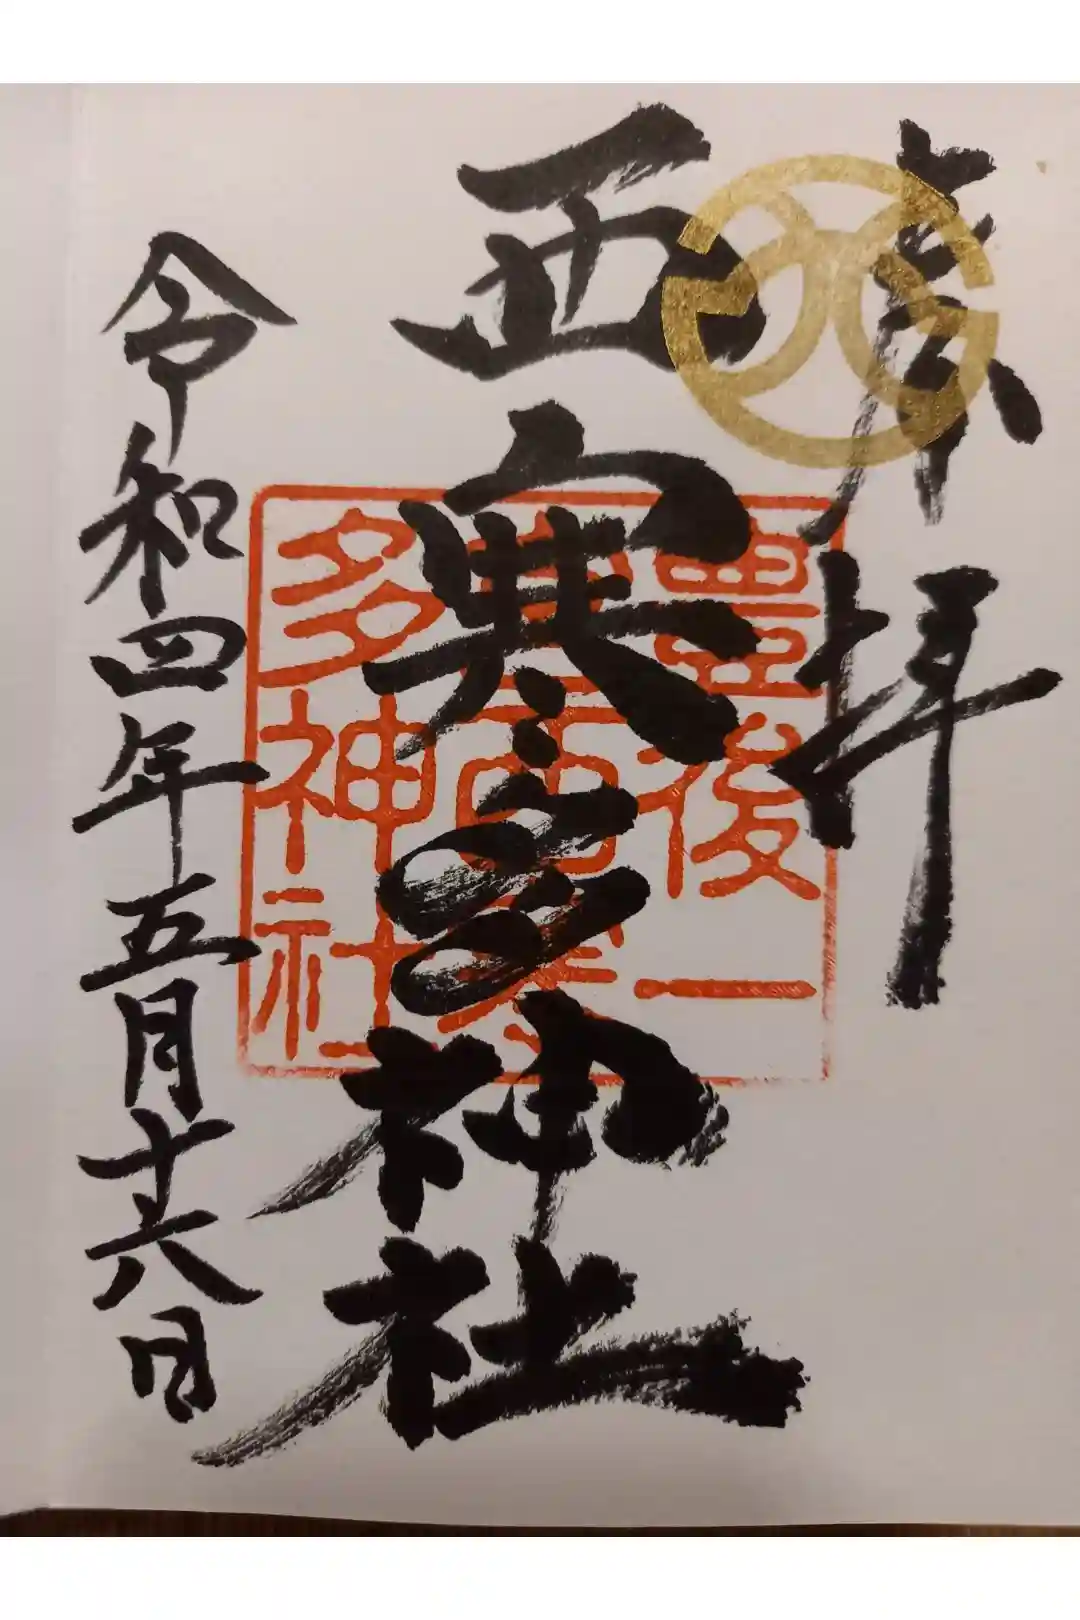 奉拝
西寒多神社
令和四年五月十六日
豊後一
宮西寒
多神社